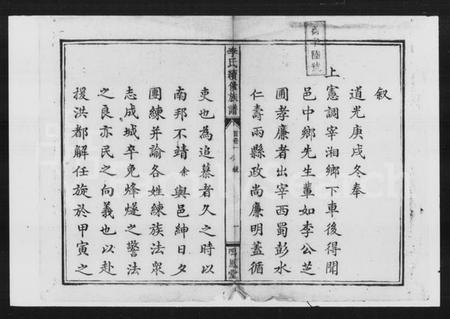 叙
道光庚戌冬奉
上憲調宰湘鄉下車後得聞
邑中鄉先生輩如李公芝
圃孝廉者出宰西蜀彭水
仁壽兩縣政尚廉明蓋循
李氏續修族譜
首卷一
吏也為追慕者久之時以
南邦不靖余與邑紳日夕
團練并諭各姓練族法眾
志成城卒免烽燧之警法
之良亦民之向義也以赴
援洪都解任旋於甲寅之